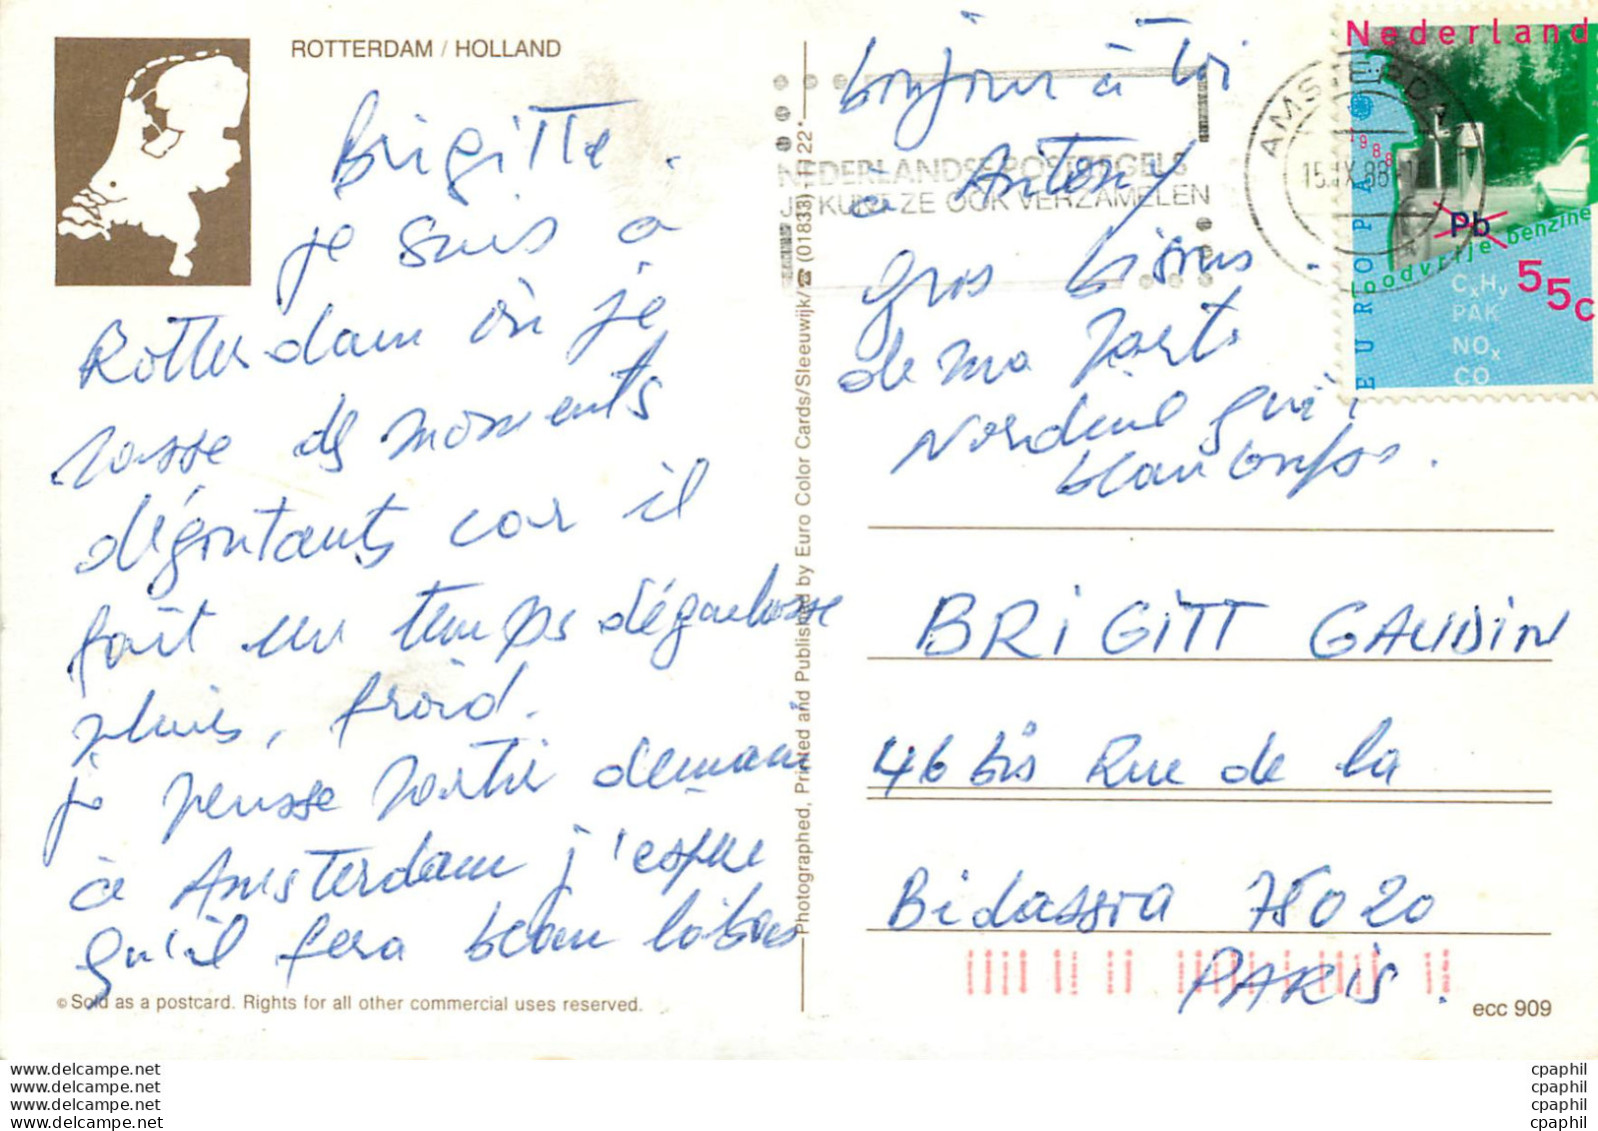 ROTTERDAM / HOLLAND
Brigitte.
je suis a
Rotterdam où je
passe des moments
dégoutants car il
fait un temps dégeulasse
pluis, froid.
je pense partir demain
à Amsterdam j'espere
qu'il fera beau là bas
© Sold as a postcard. Rights for all other commercial uses reserved.
Photographed, Printed and Published by Euro Color Cards/Sleeuwijk/☎ (01833)-1122*
bonjour à toi
à Antony
gros bisous.
de ma part.
Nordine qui
NEDERLANDSE POSTZEGELS
JE KUNT ZE OOK VERZAMELEN
AMSTERDAM
15.IX.88
Nederland
1988
EUROPA
Pb
loodvrije benzine
55c
CxHy
PAK
NOx
CO
BRIGITT GAUDIN
46 bis Rue de la
Bidassoa 75020
PARIS.
ecc 909
www.delcampe.net
www.delcampe.net
www.delcampe.net
www.delcampe.net
cpaphil
cpaphil
cpaphil
cpaphil